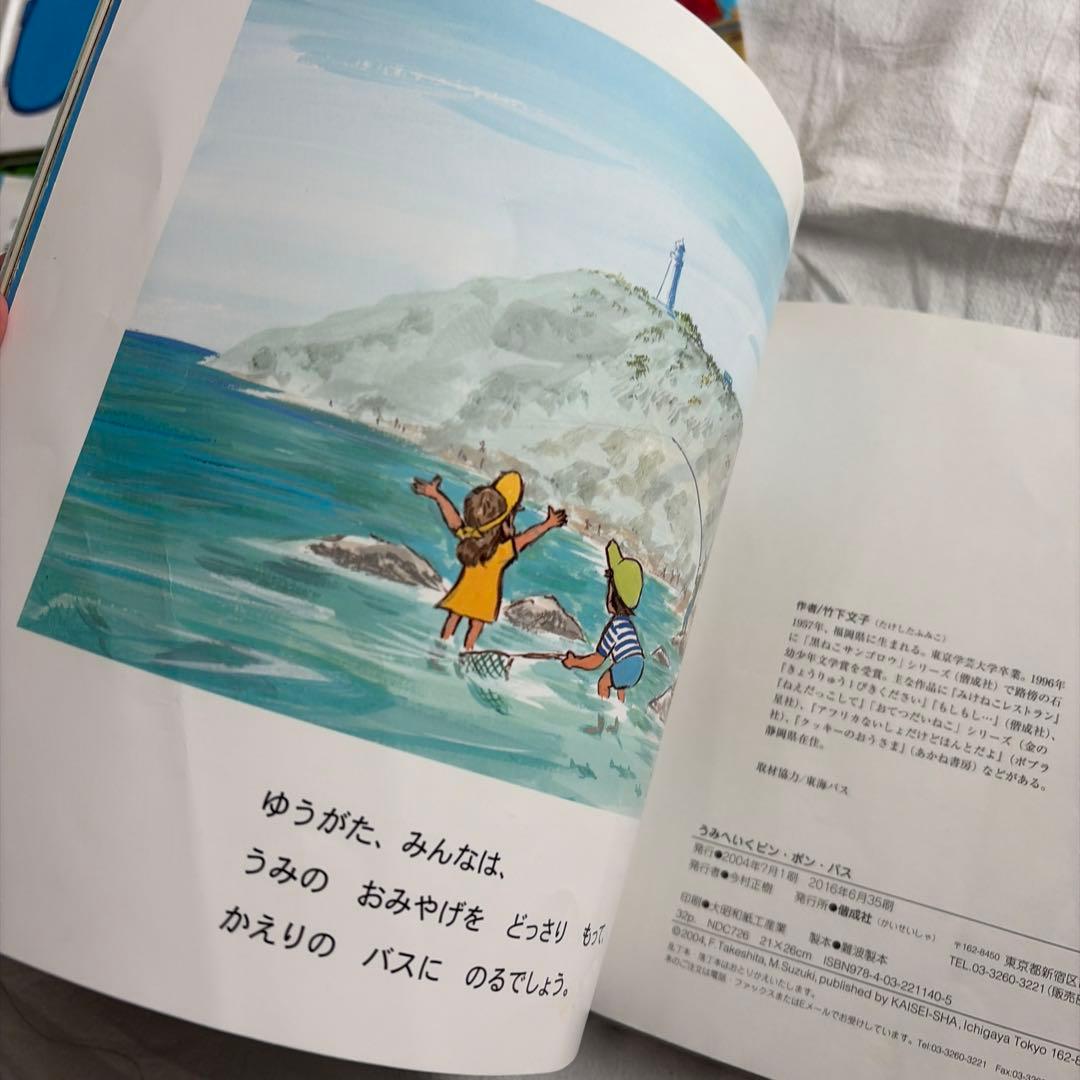 ゆうがた、みんなは、
うみの おみやげを どっさり もって、
かえりの バスに のるでしょう。
作者/竹下文子（たけしたふみこ）
1957年、福岡県に生まれる。東京学芸大学卒業。1996年
に「黒ねこサンゴロウ」シリーズ（偕成社）で路傍の石
幼少年文学賞を受賞。主な作品に『みけねこレストラン』
『きょうりゅう1ぴきください』『もしもし…』（偕成社）、
『ねえだっこして』『おてつだいねこ』シリーズ（金の
星社）、『アフリカないしょだけどほんとだよ』（ポプラ
社）、『クッキーのおうさま』（あかね書房）などがある。
静岡県在住。
取材協力/東海バス
うみへいくピン・ポン・バス
発行●2004年7月1刷 2016年6月35刷
発行者●今村正樹 発行所●偕成社（かいせいしゃ）
〒162-8450 東京都新宿区
TEL.03-3260-3221（販売
印刷●大昭和紙工産業 製本●難波製本
32p. NDC726 21×26cm ISBN978-4-03-221140-5
©2004, F.Takeshita, M.Suzuki, published by KAISEI-SHA, Ichigaya Tokyo 162-8
乱丁本・落丁本はおとりかえいたします。
本のご注文は電話・ファックスまたはEメールでお受けしています。Tel:03-3260-3221 Fax:03-32